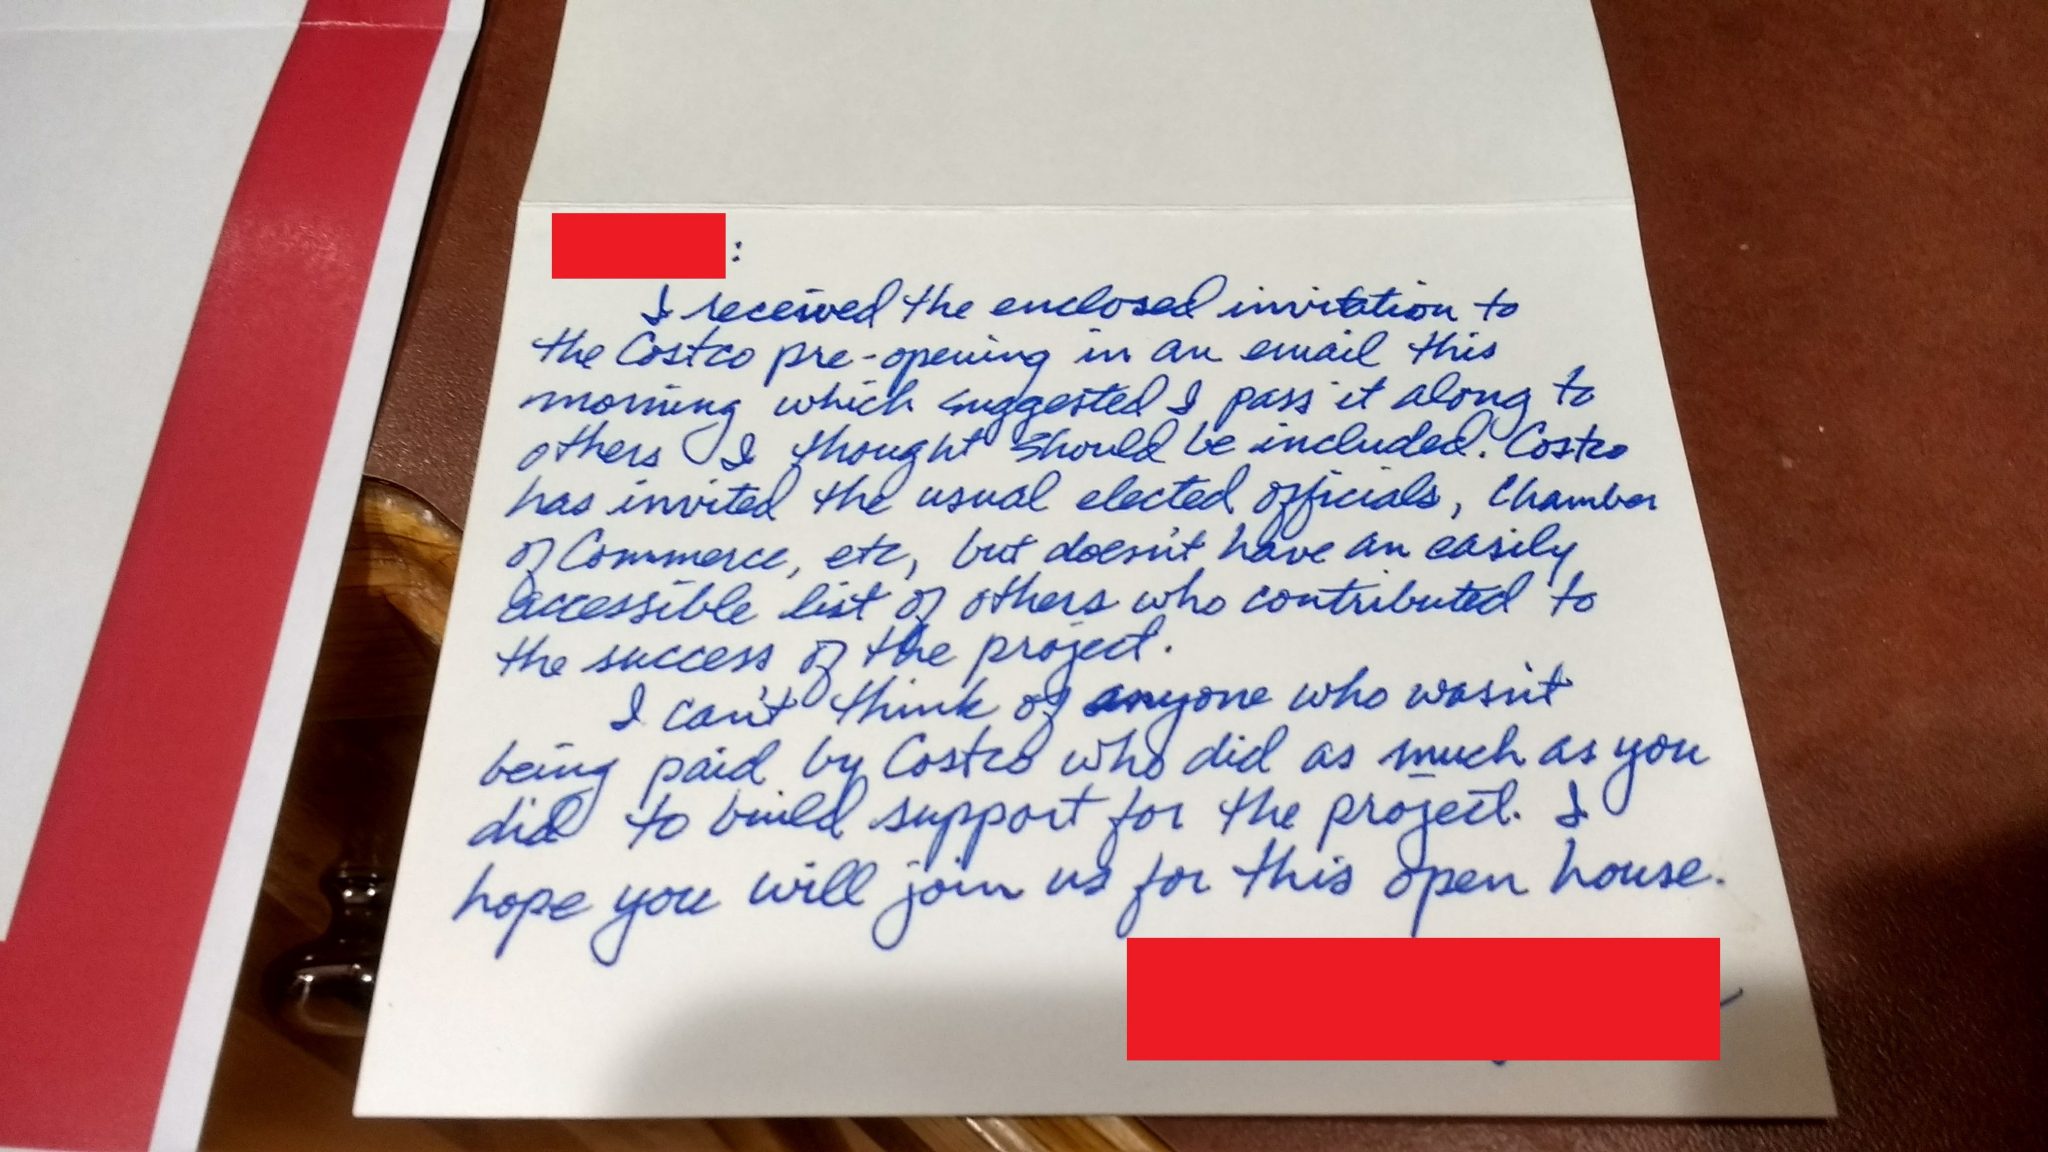 :
I received the enclosed invitation to
the Costco pre-opening in an email this
morning which suggested I pass it along to
others I thought should be included. Costco
has invited the usual elected officials, Chamber
of Commerce, etc, but doesn't have an easily
accessible list of others who contributed to
the success of the project.
I can't think of anyone who wasn't
being paid by Costco who did as much as you
did to build support for the project. I
hope you will join us for this open house.